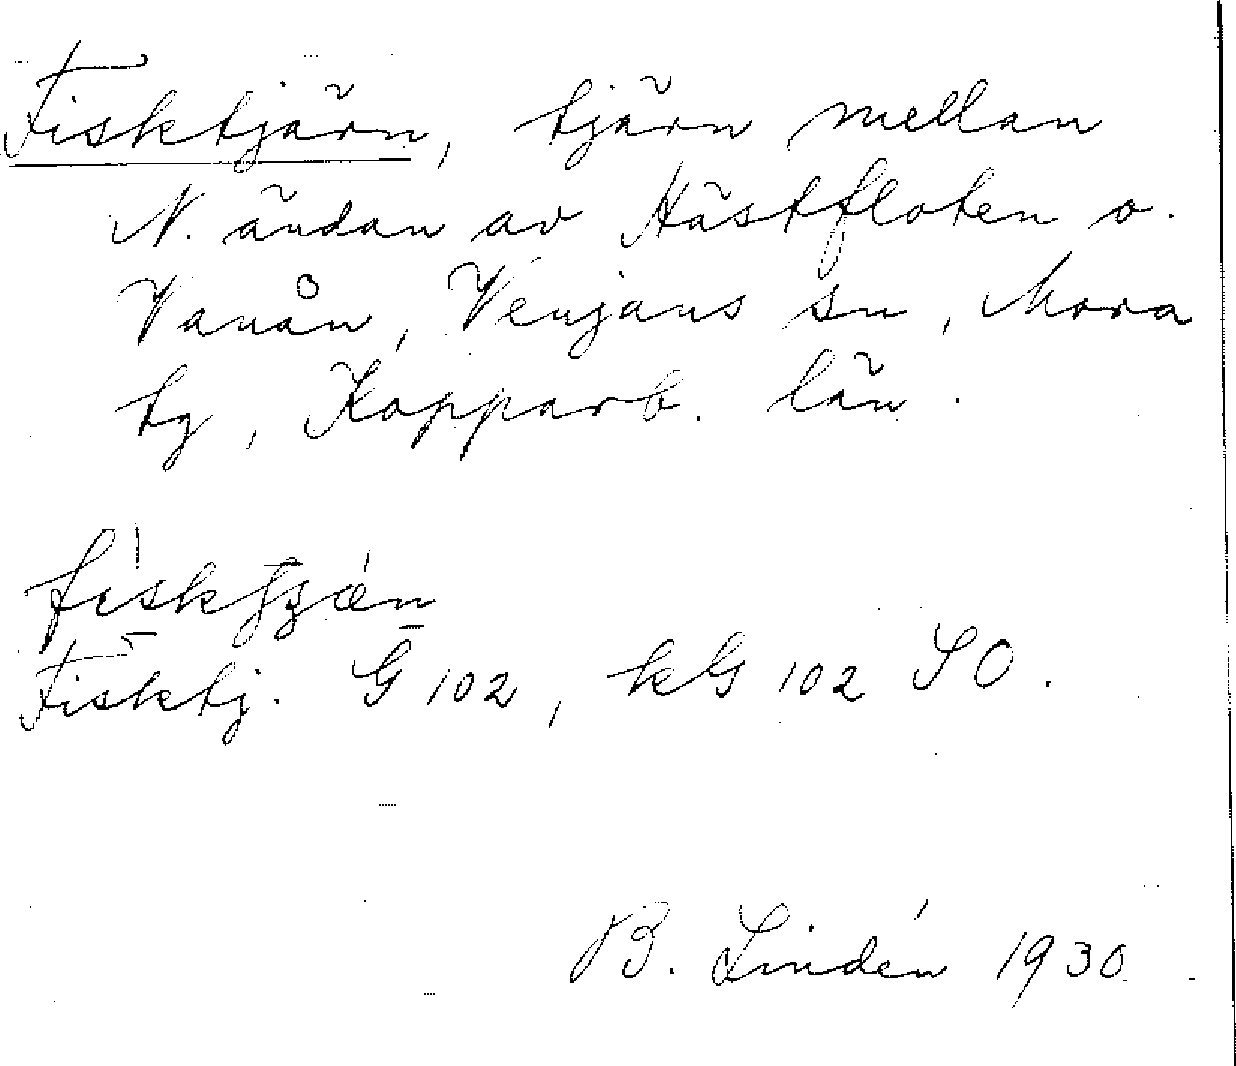 Fisktjärn, tjärn mellan
N. ändan av Hästfloten o.
Vanån, Venjans sn, Mora
tg, Kopparb. län.
Fisktj. G 102, kG 102 SO.
B. Lindén 1930